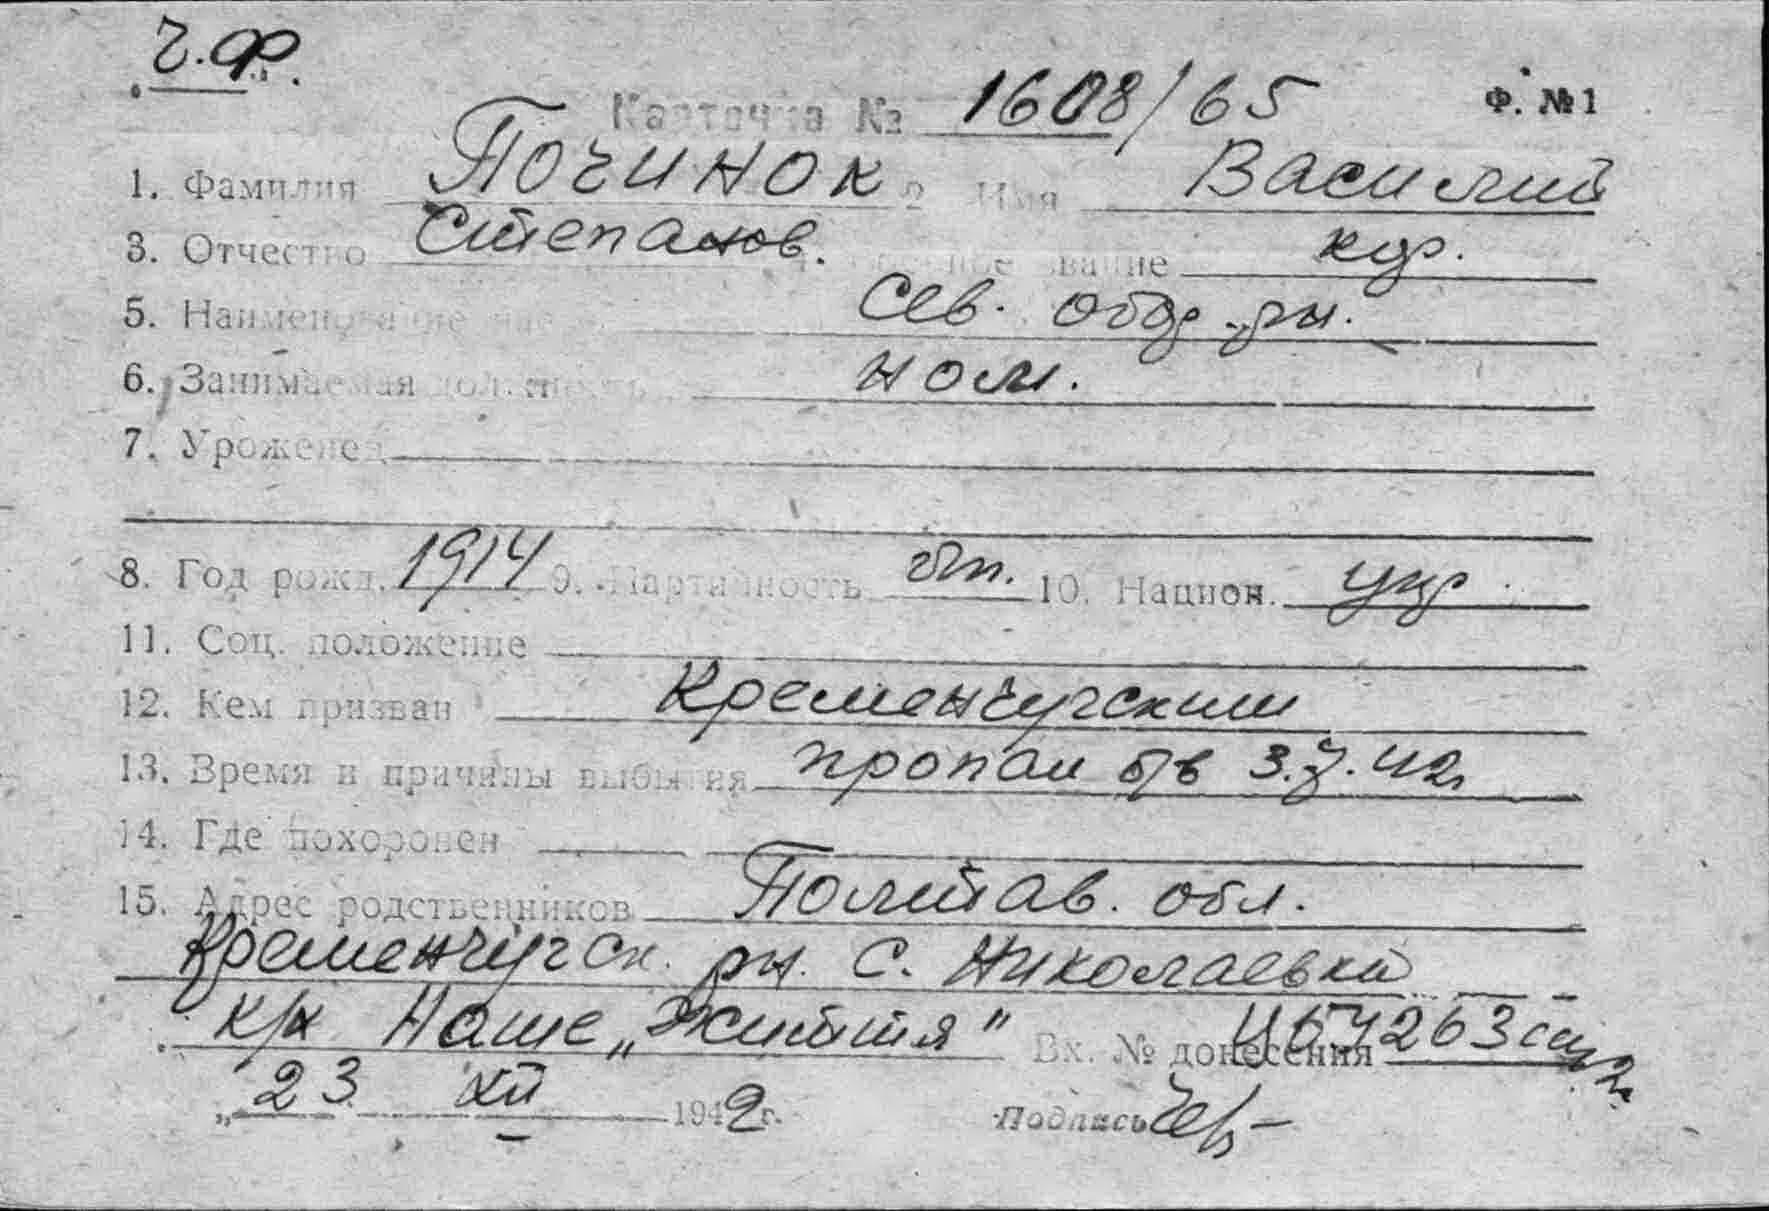 Ч.Ф.
Карточка № 1608/65 Ф. №1
1. Фамилия Починок 2 Имя Василий
3. Отчество Степанов. звание кф.
5. Наименование Сев. обор. рн.
6. Занимаемая должность ном.
7. Уроженец
8. Год рожд. 1914 9. Партийность бп. 10. Национ. укр
11. Соц. положение
12. Кем призван Кременчугским
13. Время и причины выбытия пропал б/в 3.7.42г
14. Где похоронен
15. Адрес родственников Полтав. обл.
Кременчугск. рн. с. Николаевка
к/х Наше „Життя" Вх. № донесения
„23 XII 1942г. Подпись